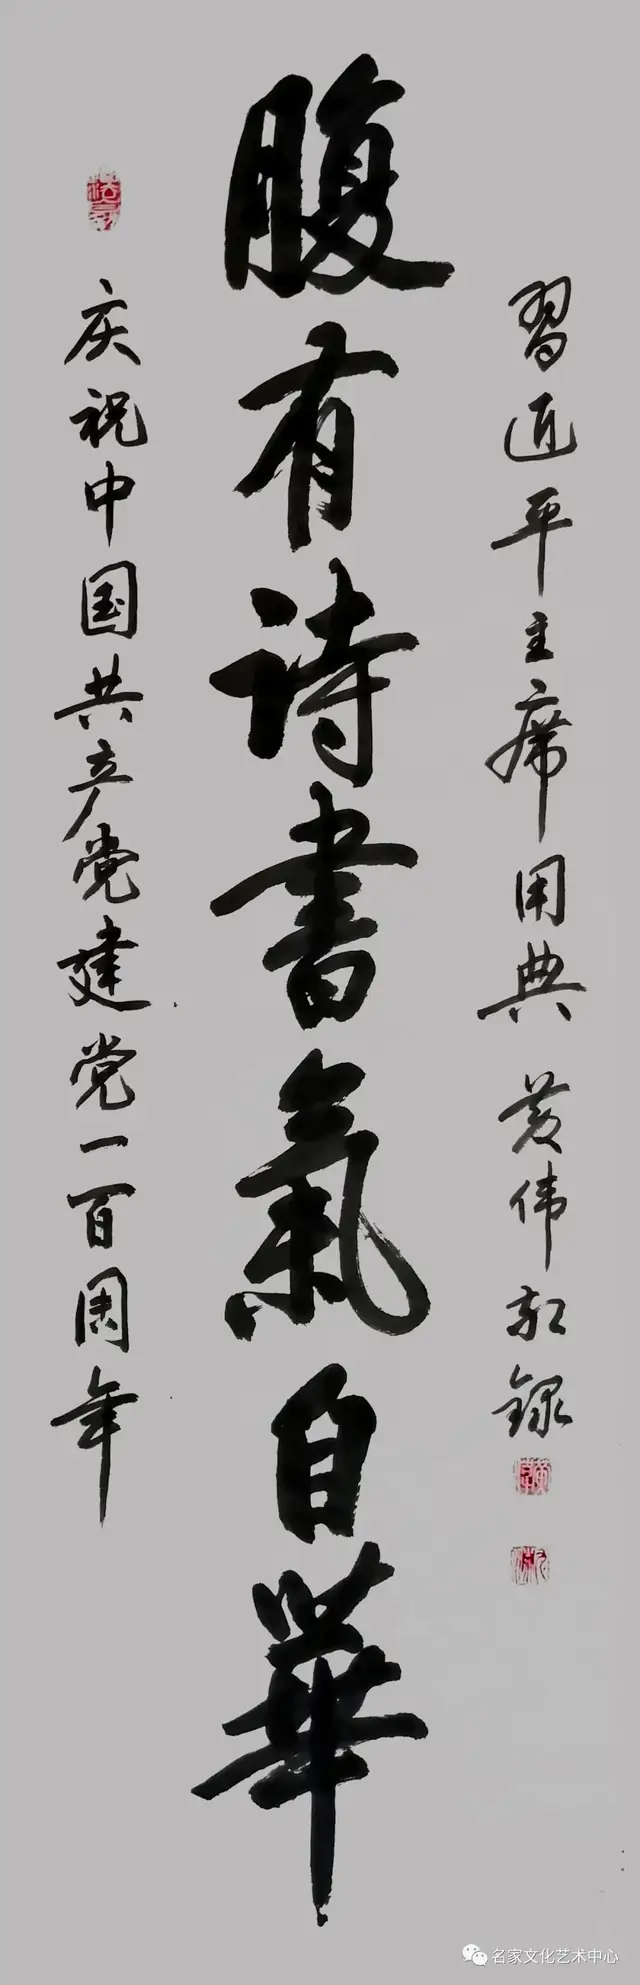 腹有诗書氣自華
習近平主席用典 黄伟敬録
庆祝中国共产党建党一百周年
名家文化艺术中心